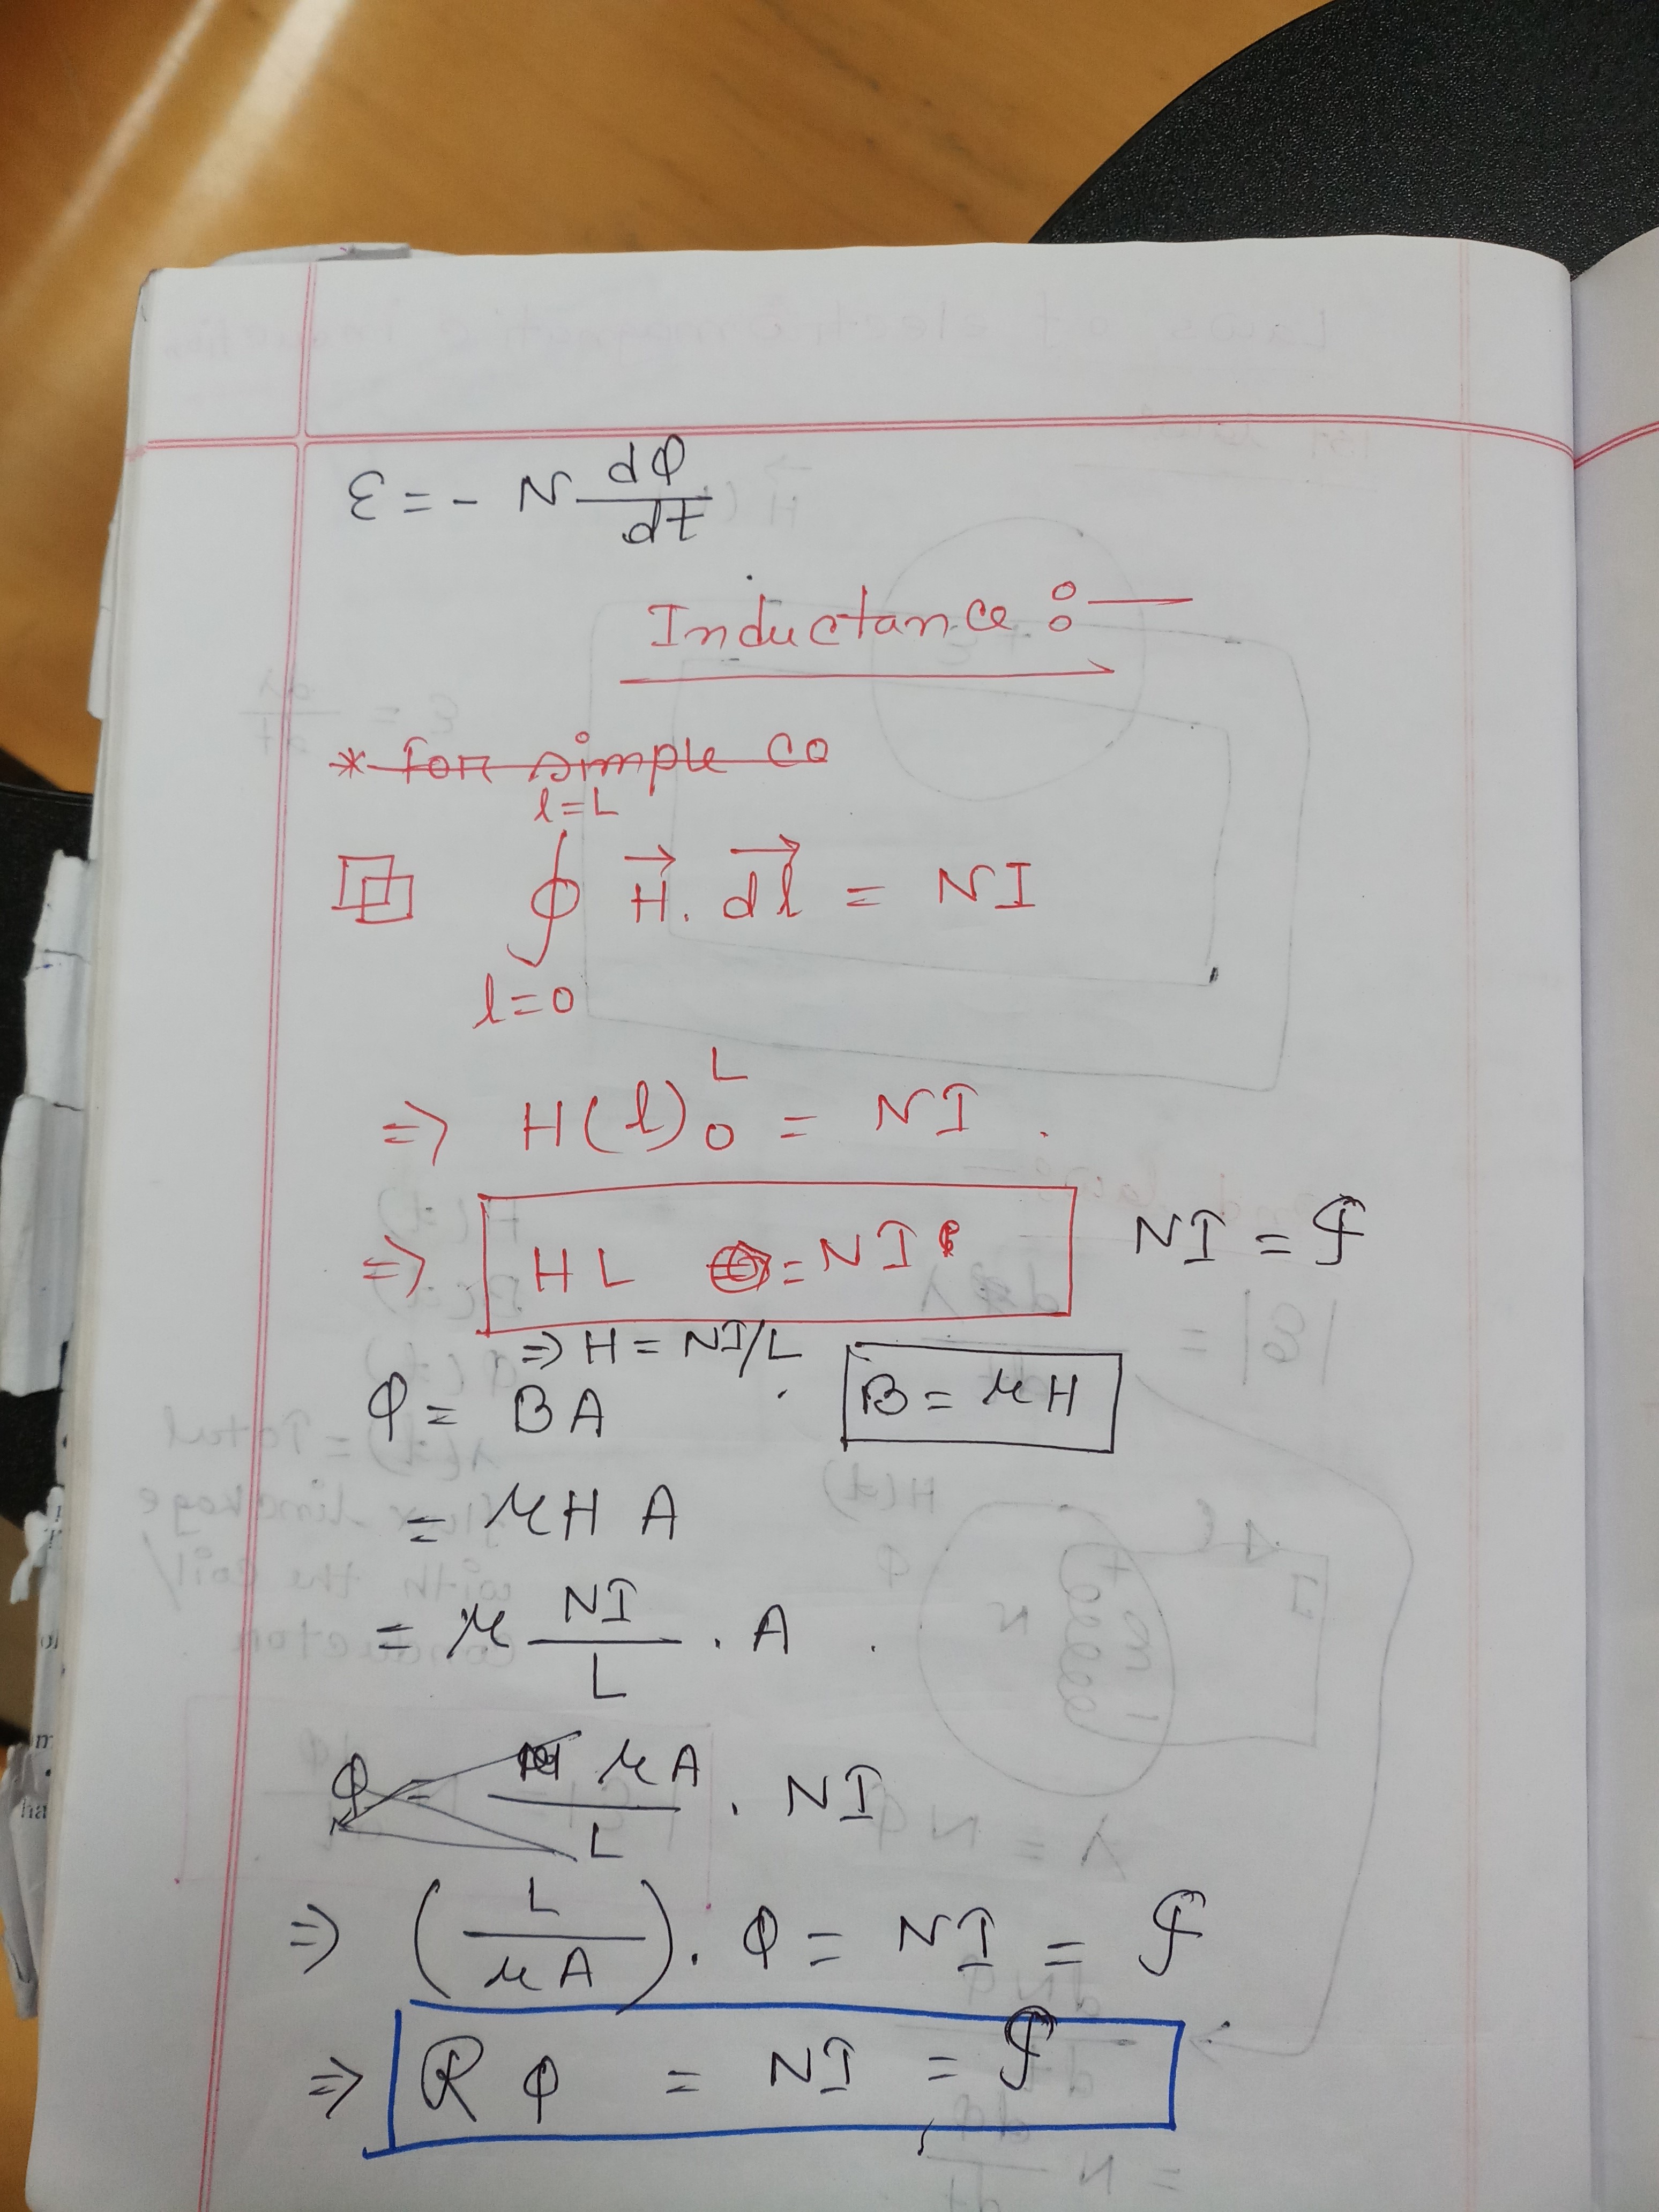 ε = - N dφ/dt
Inductance :—
* for simple co
l=L
∮ H⃗ . dl⃗ = NI
l=0
⇒ H(l)₀ᴸ = NI .
⇒ HL = NI
NI = ℱ
⇒ H = NI/L
φ = BA . B = μH
= μH A
= μ NI/L . A .
φ = μA/L . NI
⇒ (L/μA) . φ = NI = ℱ
⇒ ℛ φ = NI = ℱ